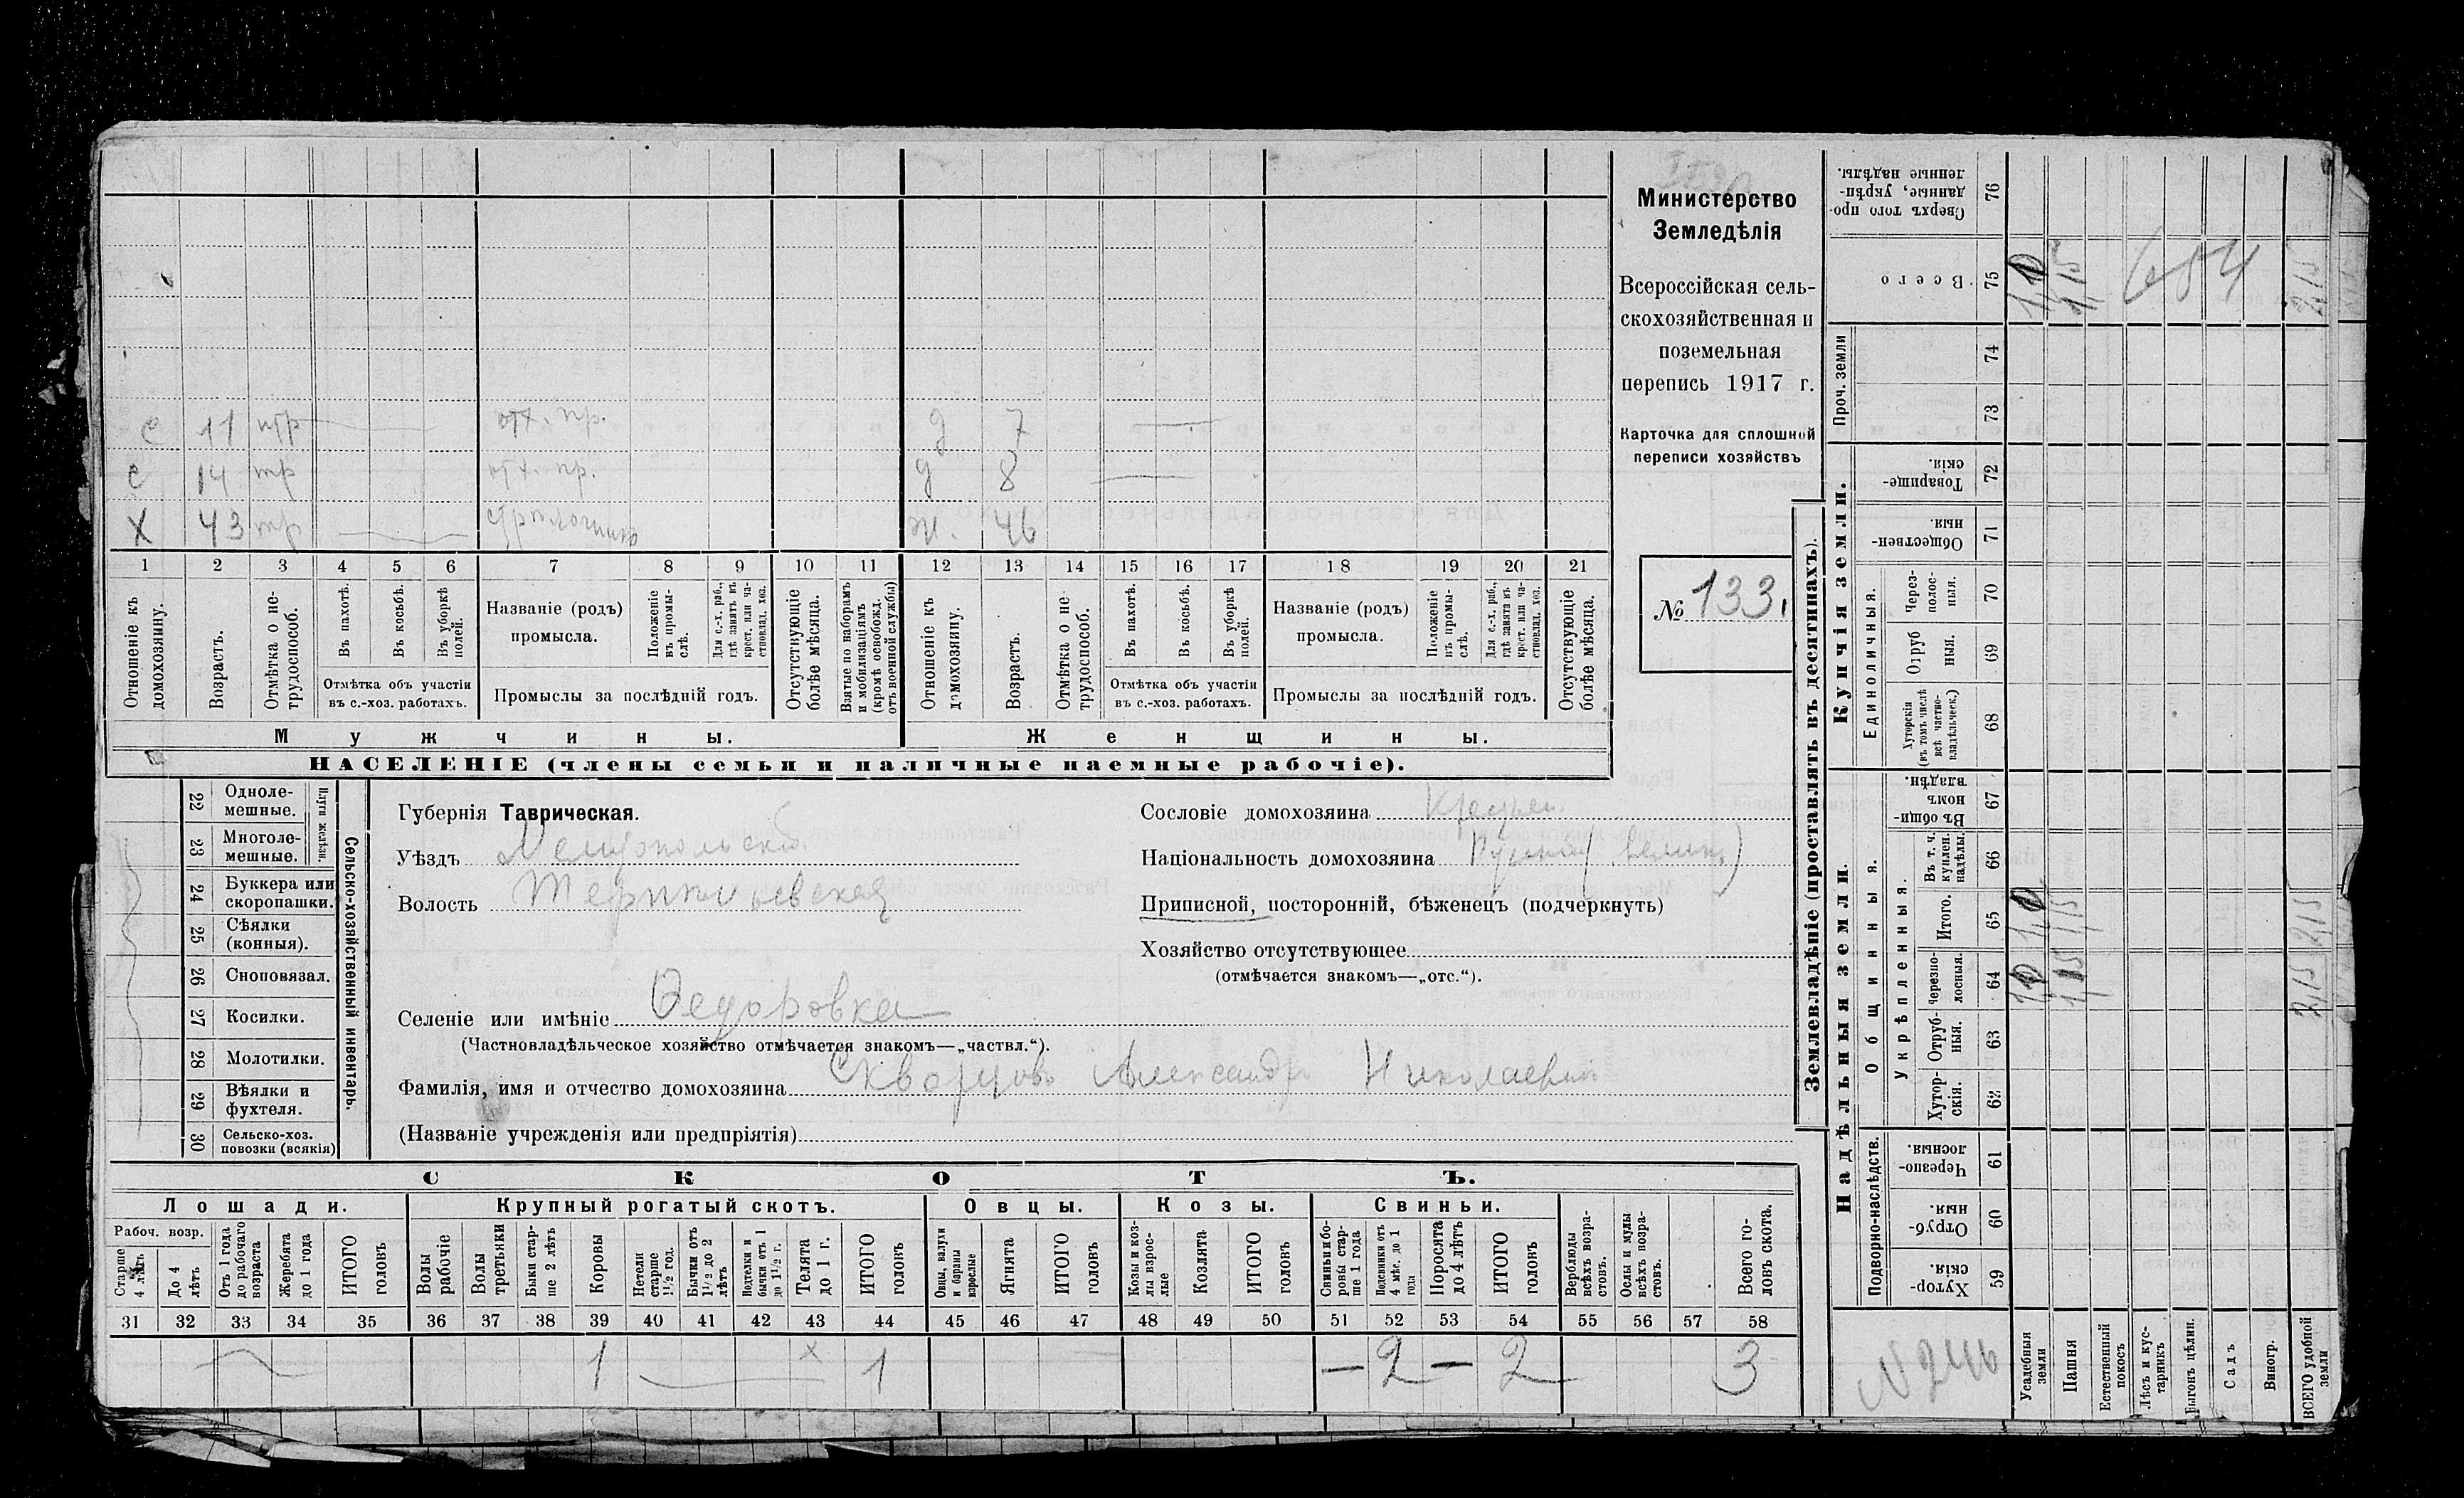 Министерство
Земледѣлія
Всероссійская сель-
скохозяйственная и
поземельная
перепись 1917 г.
Карточка для сплошной
переписи хозяйствъ
№ 133.
с 11 отх. пр. д 7
с 14 отх. пр. д 8
Х 43 ж. 46
1 2 3 4 5 6 7 8 9 10 11 12 13 14 15 16 17 18 19 20 21
Отношеніе къ домохозяину.
Возрастъ.
Отмѣтка о не-трудоспособ.
Въ пахотѣ.
Въ косьбѣ.
Въ уборкѣ полей.
Отмѣтка объ участіи
въ с.-хоз. работахъ.
Названіе (родъ)
промысла.
Положеніе въ промы-слѣ.
Для с.-х. раб., гдѣ занятъ въ крест. или ча-стновлад. хоз.
Промыслы за послѣдній годъ.
Отсутствующіе болѣе мѣсяца.
Взятые по наборамъ и мобилизаціямъ (кромѣ освобожд. отъ военной службы)
Отношеніе къ домохозяину.
Возрастъ.
Отмѣтка о не-трудоспособ.
Въ пахотѣ.
Въ косьбѣ.
Въ уборкѣ полей.
Отмѣтка объ участіи
въ с.-хоз. работахъ.
Названіе (родъ)
промысла.
Положеніе въ промы-слѣ.
Для с.-х. раб., гдѣ занята въ крест. или ча-стновлад. хоз.
Промыслы за послѣдній годъ.
Отсутствующіе болѣе мѣсяца.
Мужчины.
Женщины.
НАСЕЛЕНІЕ (члены семьи и наличные наемные рабочіе).
Сельско-хозяйственный инвентарь.
Плуги желѣзн.
22 Одноле-мешные.
23 Многоле-мешные.
24 Буккера или скоропашки.
25 Сѣялки (конныя).
26 Сноповязал.
27 Косилки.
28 Молотилки.
29 Вѣялки и фухтеля.
30 Сельско-хоз. повозки (всякія)
Губернія Таврическая.
Уѣздъ Мелитопольскій
Волость
Селеніе или имѣніе Федоровка
(Частновладѣльческое хозяйство отмѣчается знакомъ—„частвл.“).
Фамилія, имя и отчество домохозяина Скворцовъ Александръ Николаевичъ
(Названіе учрежденія или предпріятія)
Сословіе домохозяина Крестьян.
Національность домохозяина Русскій (велик.)
Приписной, посторонній, бѣженецъ (подчеркнуть)
Хозяйство отсутствующее
(отмѣчается знакомъ—„отс.“).
СКОТЪ.
Лошади. Крупный рогатый скотъ. Овцы. Козы. Свиньи.
Рабоч. возр.
Старше 4 лѣтъ
До 4 лѣтъ
Отъ 1 года до рабочаго возраста
Жеребята до 1 года
ИТОГО головъ
Волы рабочіе
Волы третьяки
Быки стар-ше 2 лѣтъ
Коровы
Нетели старше 1½ год.
Бычки отъ 1½ до 2 лѣтъ
Подтелки и бычки отъ 1 до 1½ г.
Телята до 1 г.
ИТОГО головъ
Овцы, валухи и бараны взрослые
Ягнята
ИТОГО головъ
Козы и коз-лы взрос-лые
Козлята
ИТОГО головъ
Свиньи и бо-ровы стар-ше 1 года
Подсвинки отъ 4 мѣс. до 1 года
Поросята до 4 лѣтъ
ИТОГО головъ
Верблюды всѣхъ возра-стовъ.
Ослы и мулы всѣхъ возра-стовъ.
Всего го-ловъ скота.
31 32 33 34 35 36 37 38 39 40 41 42 43 44 45 46 47 48 49 50 51 52 53 54 55 56 57 58
1 х 1 — 2 — 2 3
Землевладѣніе (проставлять въ десятинахъ).
Надѣльныя земли.
Купчія земли.
Проч. земли
Подворно-наслѣдств.
Общинныя.
Укрѣпленныя.
Единоличныя.
Сверхъ того про-данные, укрѣп-ленные надѣлы. 76
Всего 75 654 2,15
74
73
Товарище-скія. 72
Обществен-ныя 71
Через-полос-ныя. 70
Отруб ныя. 69
Хуторскія (въ томъ числѣ всѣ частно-владѣльческ.) 68
Въ общи-номъ владѣн. 67
Въ т. ч. куплен. надѣлы. 66
Итого. 65 1,0 1,15 2,15
Черезпо-лосныя. 64 1,0 1,15 2,15
Отруб-ныя. 63
Хутор-скія. 62
Черезпо-лосныя. 61
Отруб-ныя. 60
Хутор-скія. 59
N 246
Усадебныя земли
Пашня
Естественный покосъ
Лѣсъ и кус-тарникъ
Выгонъ цѣлин.
Садъ
Виногр.
ВСЕГО удобной земли